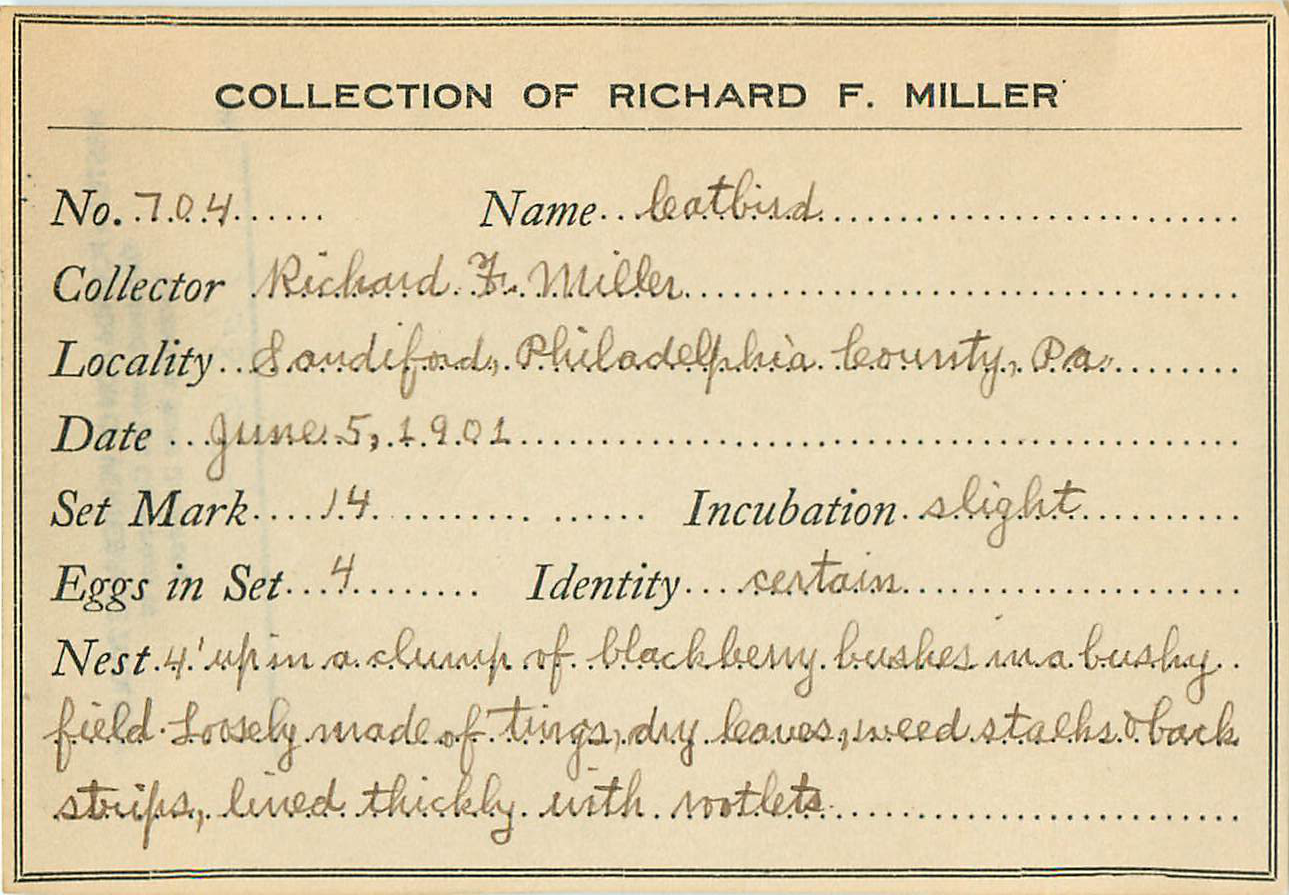 COLLECTION OF RICHARD F. MILLER
No. 704 Name Catbird
Collector Richard F. Miller
Locality Sandiford, Philadelphia County, Pa.
Date June 5, 1901
Set Mark 14 Incubation slight
Eggs in Set 4 Identity certain
Nest 4' up in a clump of blackberry bushes in a bushy
field. Loosely made of twigs, dry leaves, weed stalks & bark
strips, lined thickly with rootlets